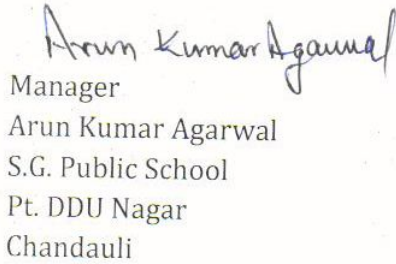 Arun Kumar Agarwal
Manager
Arun Kumar Agarwal
S.G. Public School
Pt. DDU Nagar
Chandauli